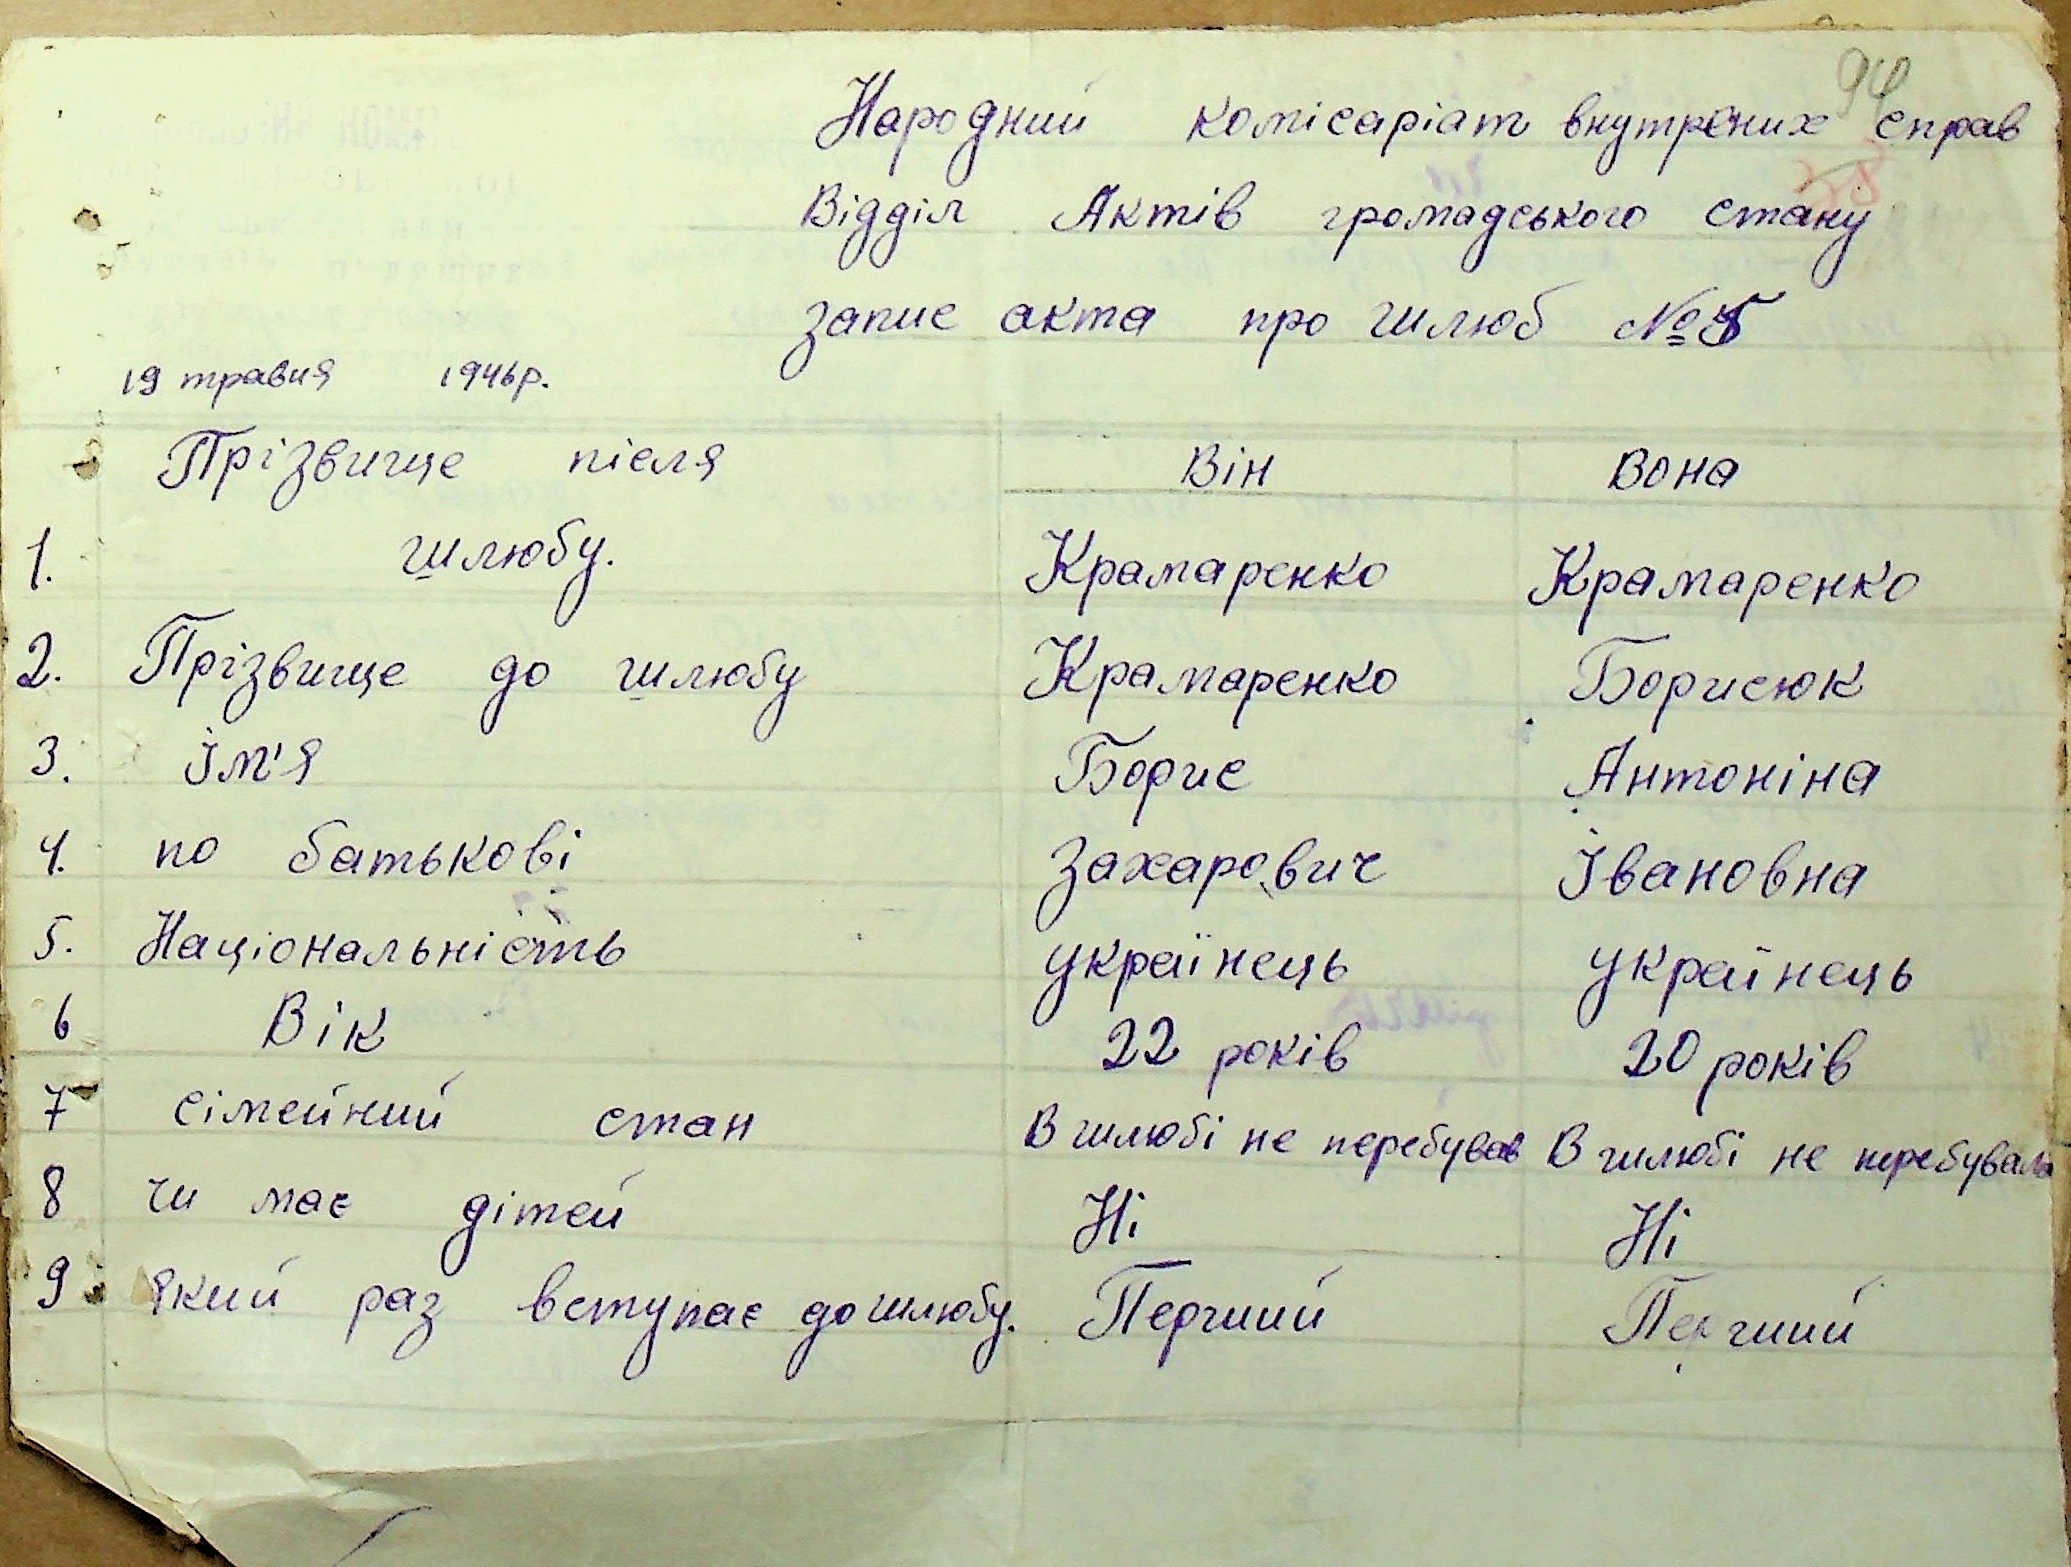 94
Народний комісаріат внутрєних справ
Відділ Актів громадського стану
запис акта про шлюб № 5
19 травня 1946р.
Прізвище після Він Вона
1. шлюбу. Крамаренко Крамаренко
2. Прізвище до шлюбу Крамаренко Борисюк
3. Ім'я Борис Антоніна
4. по батькові Захарович Івановна
5. Національність українець українець
6 Вік 22 років 20 років
7 сімейний стан В шлюбі не перебував В шлюбі не перебувала
8 чи має дітей Ні Ні
9 який раз вступає до шлюбу. Перший Перший